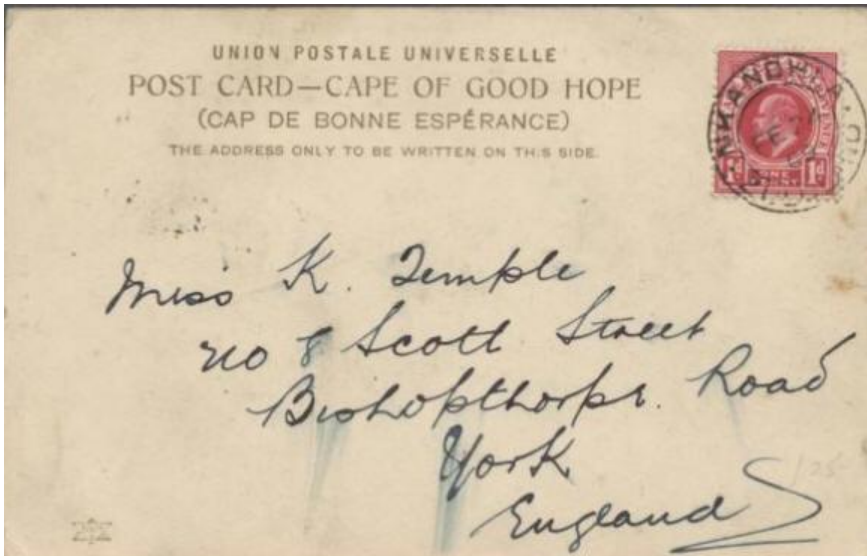 UNION POSTALE UNIVERSELLE
POST CARD—CAPE OF GOOD HOPE
(CAP DE BONNE ESPÉRANCE)
THE ADDRESS ONLY TO BE WRITTEN ON THIS SIDE.
NKANDHLA
FE
1d 1d
Miss K. Temple
no 8 Scott Street
Bishopthorpe. Road
York
England